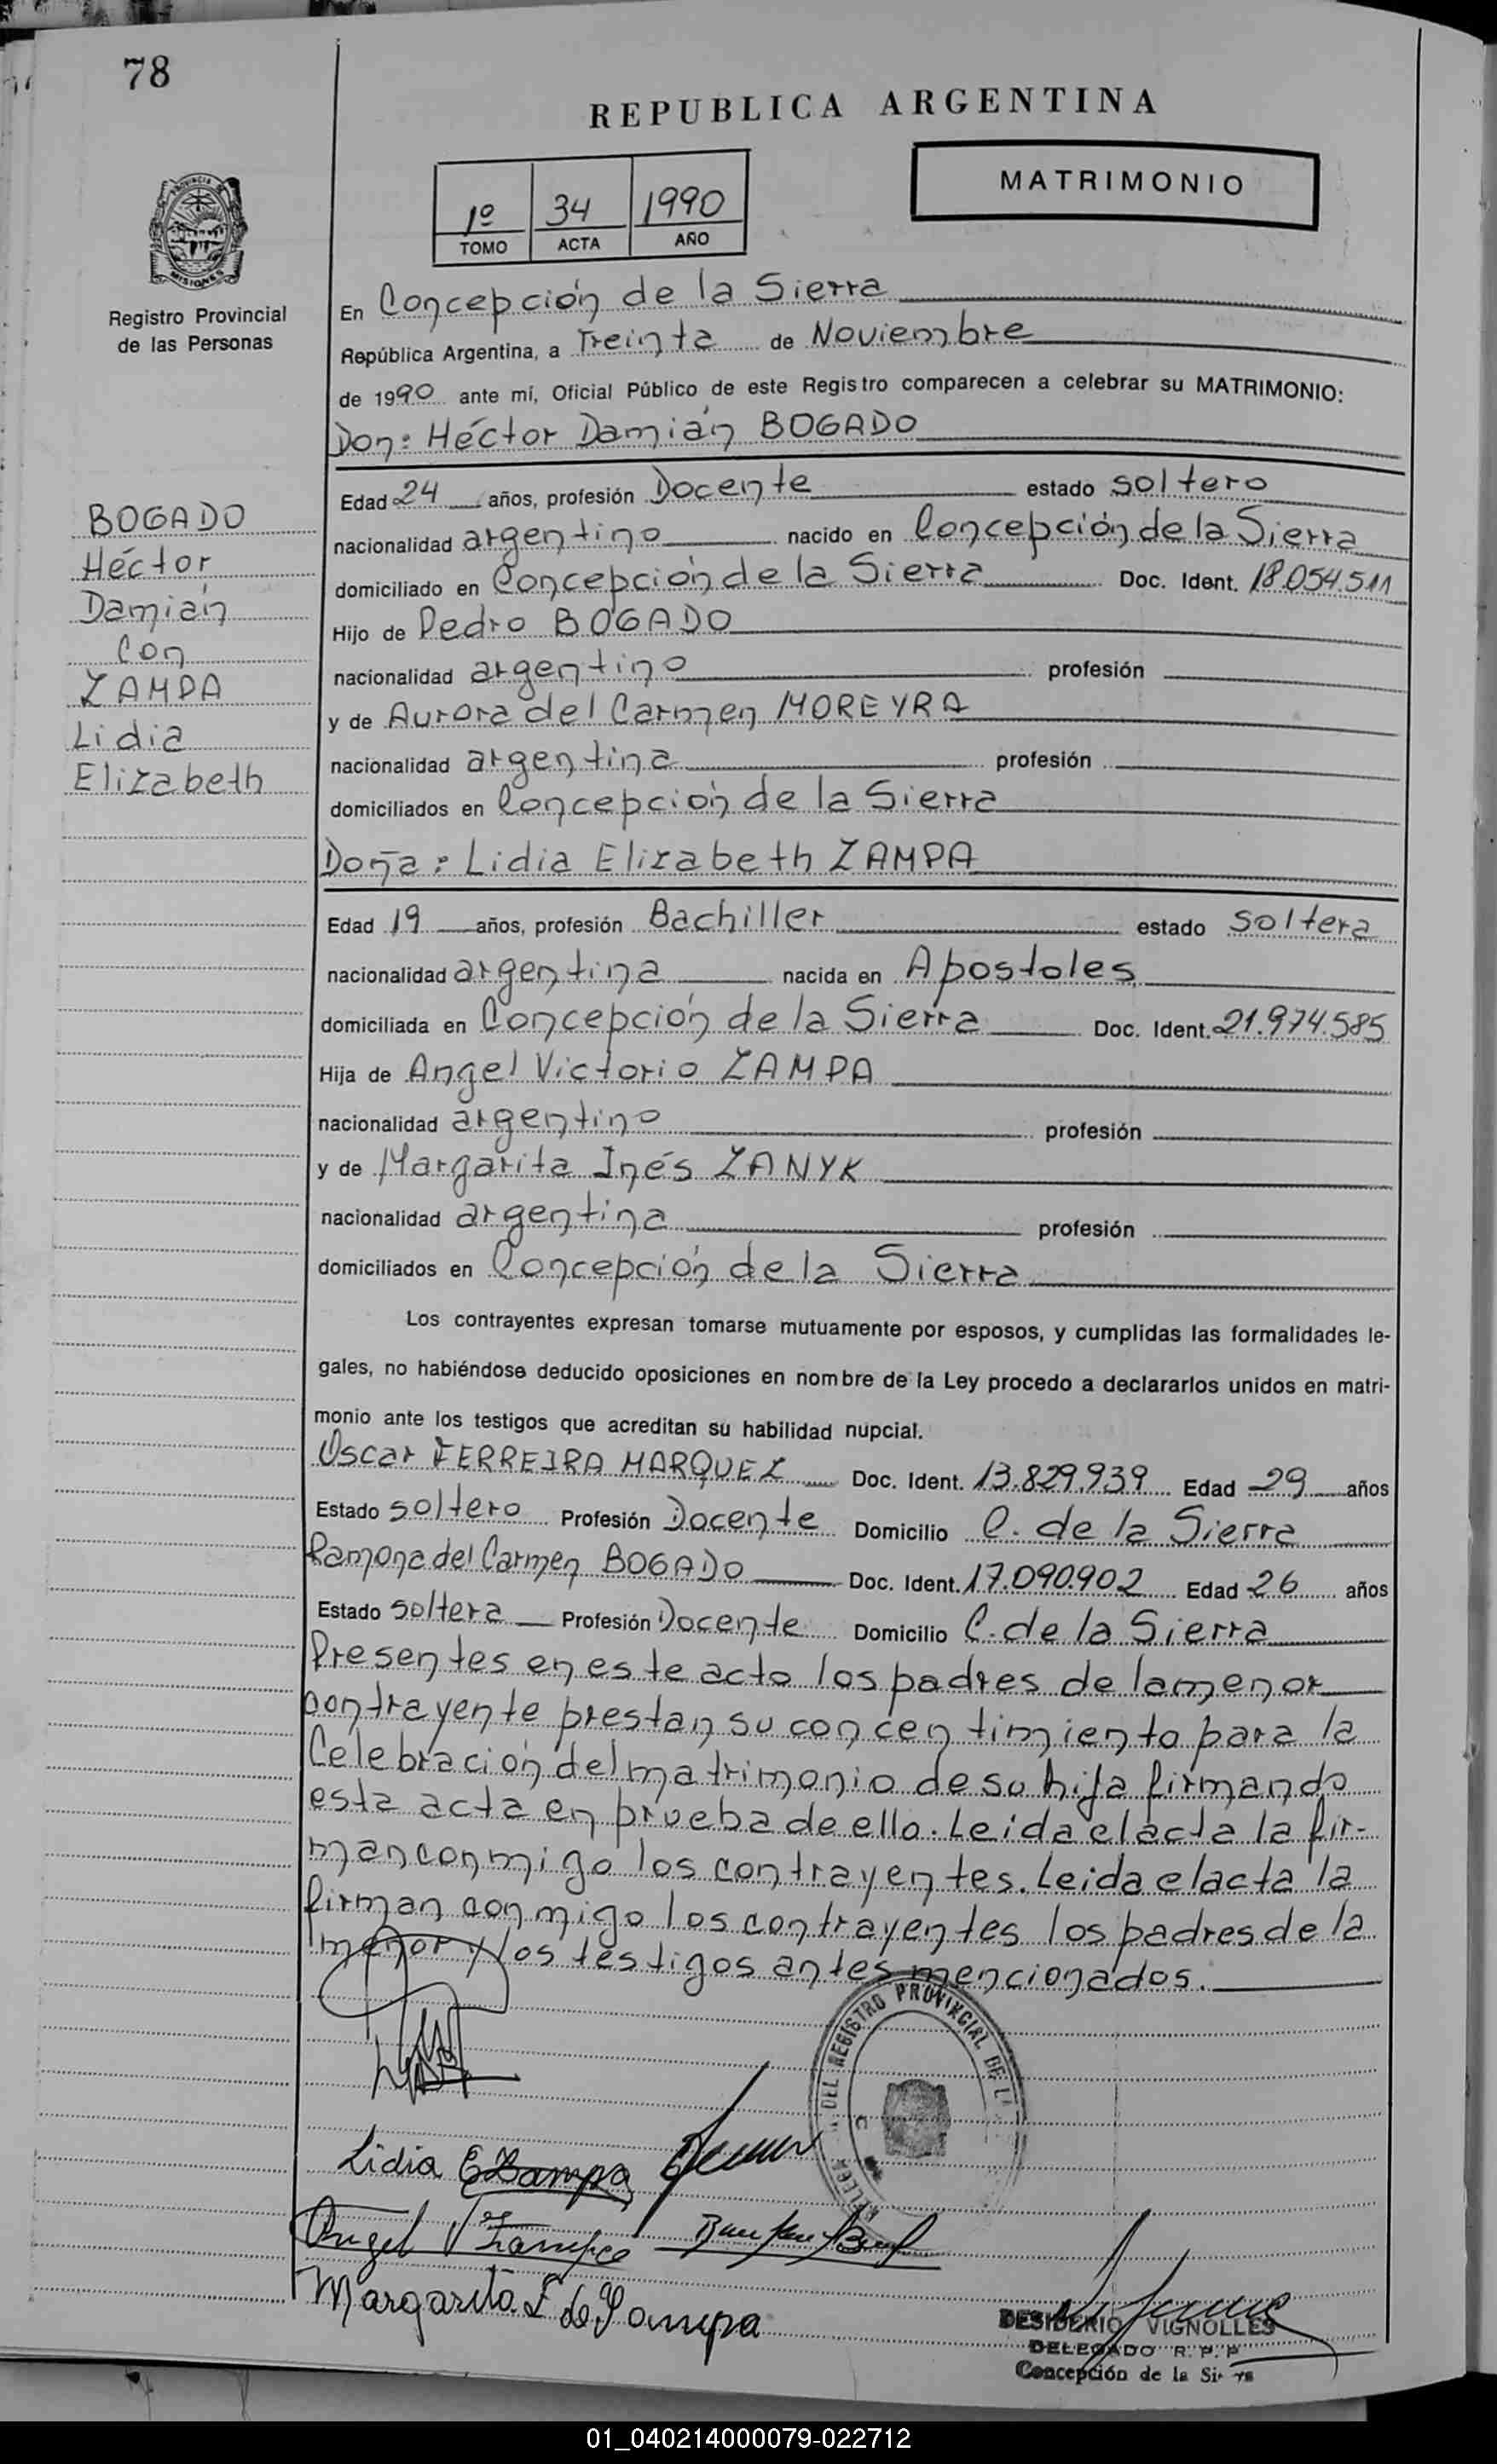 78
REPUBLICA ARGENTINA
MATRIMONIO
1º 34 1990
TOMO ACTA AÑO
PROVINCIA DE
MISIONES
Registro Provincial
de las Personas
En Concepción de la Sierra
República Argentina, a Treinta de Noviembre
de 1990 ante mí, Oficial Público de este Registro comparecen a celebrar su MATRIMONIO:
Don: Héctor Damián BOGADO
BOGADO
Héctor
Damián
Con
ZAMPA
Lidia
Elizabeth
Edad 24 años, profesión Docente estado soltero
nacionalidad argentino nacido en Concepción de la Sierra
domiciliado en Concepción de la Sierra Doc. Ident. 18.054.511
Hijo de Pedro BOGADO
nacionalidad argentino profesión
y de Aurora del Carmen MOREYRA
nacionalidad argentina profesión
domiciliados en Concepción de la Sierra
Doña: Lidia Elizabeth ZAMPA
Edad 19 años, profesión Bachiller estado soltera
nacionalidad argentina nacida en Apostoles
domiciliada en Concepción de la Sierra Doc. Ident. 21.974.585
Hija de Angel Victorio ZAMPA
nacionalidad argentino profesión
y de Margarita Inés ZANYK
nacionalidad argentina profesión
domiciliados en Concepción de la Sierra
Los contrayentes expresan tomarse mutuamente por esposos, y cumplidas las formalidades le-
gales, no habiéndose deducido oposiciones en nombre de la Ley procedo a declararlos unidos en matri-
monio ante los testigos que acreditan su habilidad nupcial.
Oscar FERREIRA MARQUEZ Doc. Ident. 13.829.939 Edad 29 años
Estado soltero Profesión Docente Domicilio C. de la Sierra
Ramona del Carmen BOGADO Doc. Ident. 17.090.902 Edad 26 años
Estado soltera Profesión Docente Domicilio C. de la Sierra
Presentes en este acto los padres de la menor
contrayente prestan su concentimiento para la
Celebración del matrimonio de su hija firmando
esta acta en prueba de ello. Leida el acta la fir-
man conmigo los contrayentes. Leida el acta la
firman conmigo los contrayentes los padres de la
menor y los testigos antes mencionados.
DEL REGISTRO PROVINCIAL DE LA
Lidia E Zampa
Angel V Zampa
Margarita I. de Zampa
DESIDERIO VIGNOLLES
DELEGADO R. P. P
Concepción de la Si
01_040214000079-022712